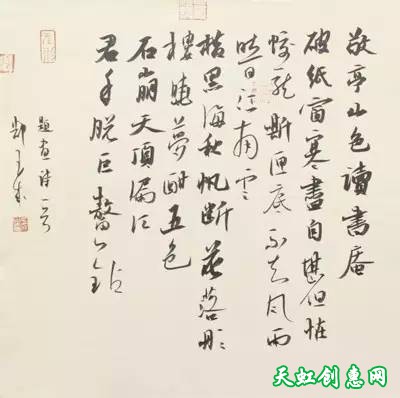 敬亭山色读书庵
破纸窗寒尽自堪但怪
蛟龙断匣底不知风雨
暗江南云
横黑海秋帆断花落彤
楼晓梦酣五色
石崩天顶漏
君手脱巨鳌
题画诗一首
天虹创意网